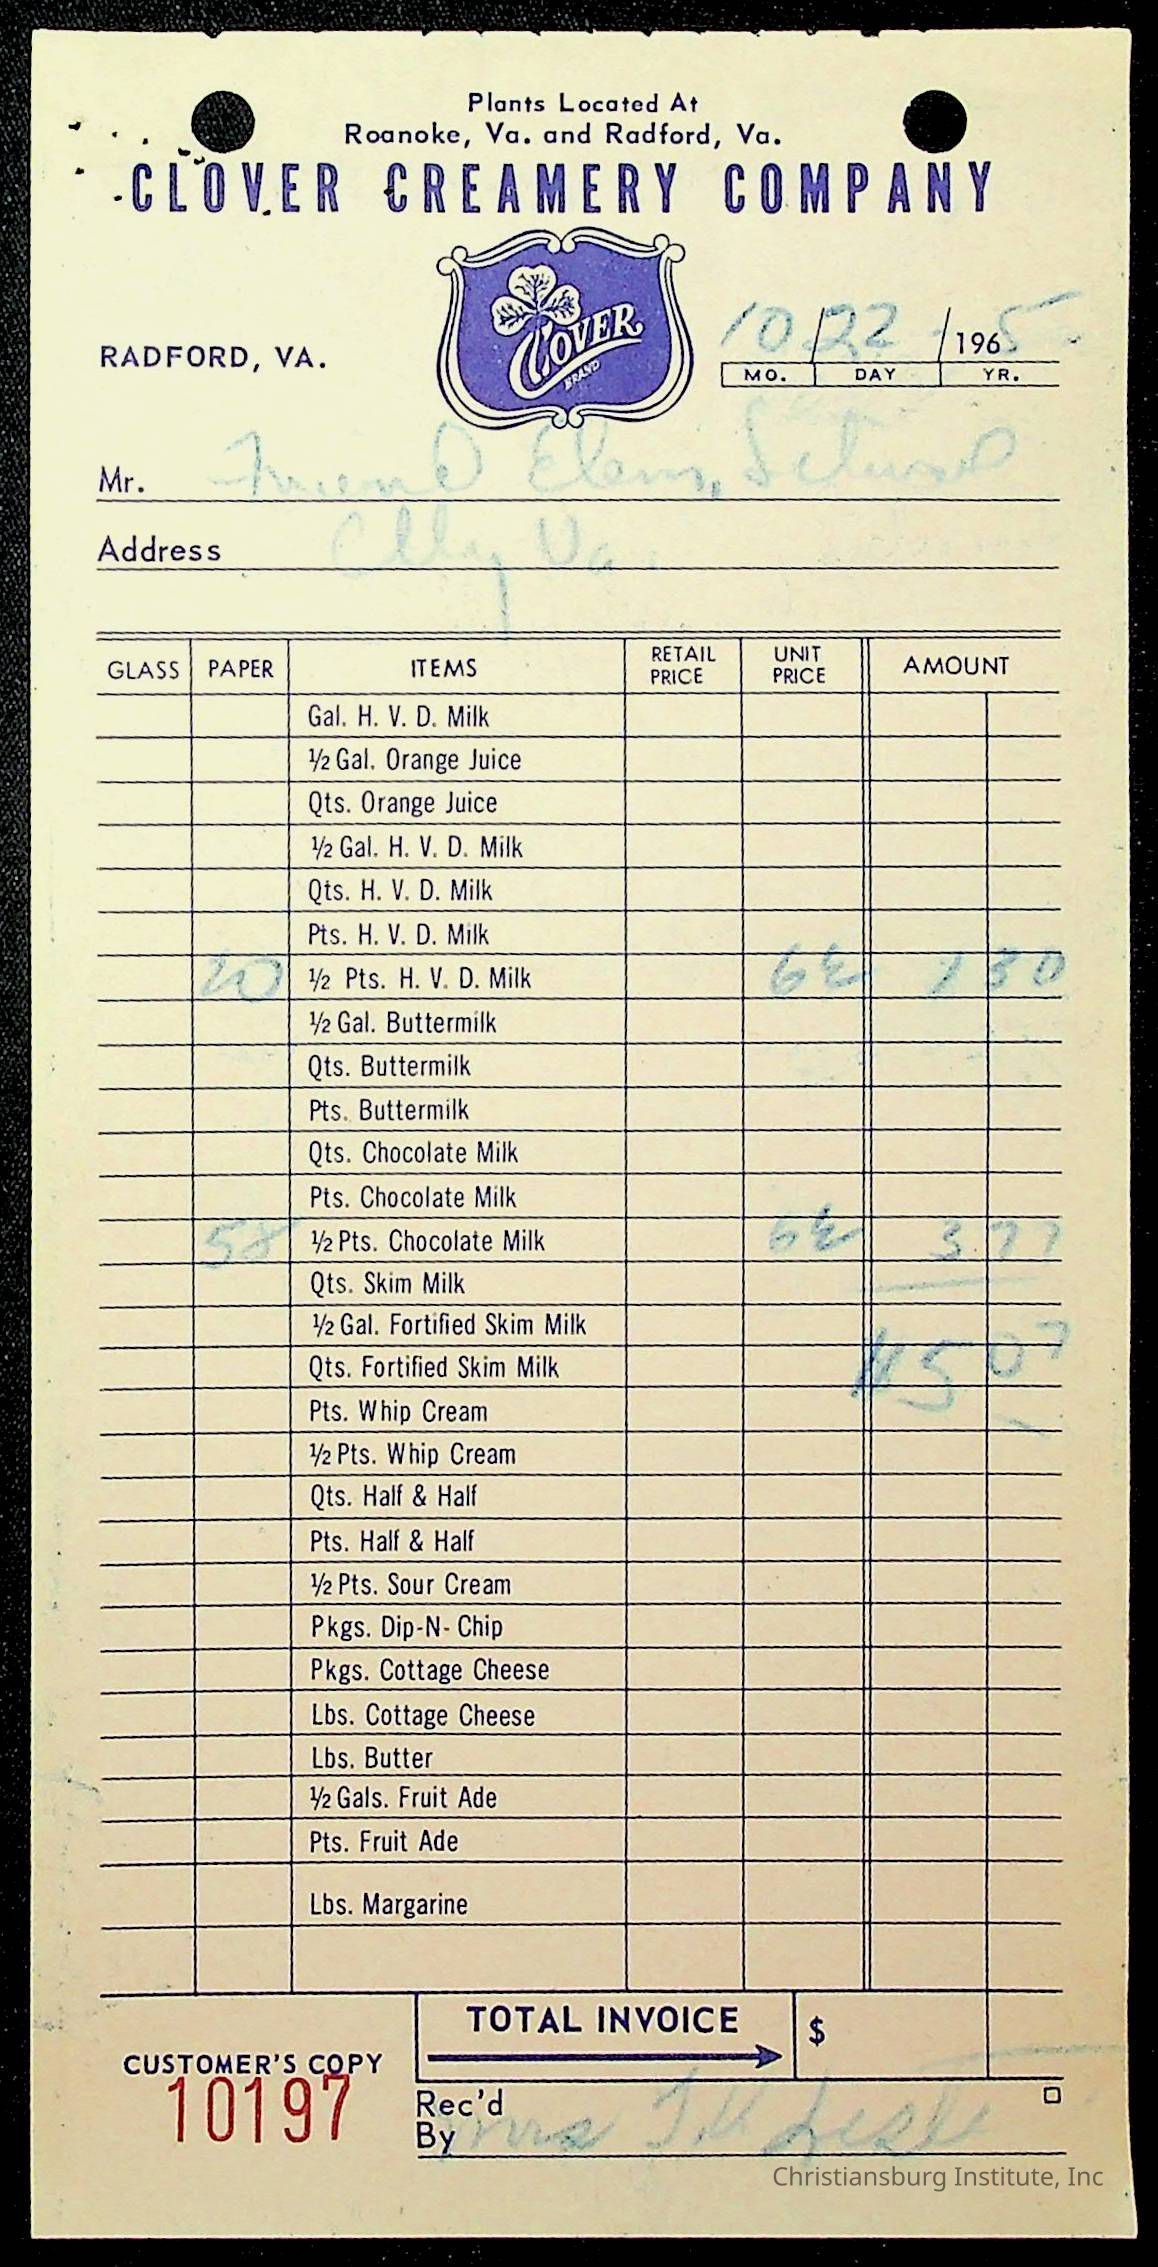 Plants Located At
Roanoke, Va. and Radford, Va.
CLOVER CREAMERY COMPANY
CLOVER
BRAND
RADFORD, VA.
10/22/1965
MO. DAY YR.
Mr. Friend Elem, School
Address Va.
GLASS PAPER ITEMS RETAIL PRICE UNIT PRICE AMOUNT
Gal. H. V. D. Milk
½ Gal. Orange Juice
Qts. Orange Juice
½ Gal. H. V. D. Milk
Qts. H. V. D. Milk
Pts. H. V. D. Milk
20 ½ Pts. H. V. D. Milk 6½ 1 30
½ Gal. Buttermilk
Qts. Buttermilk
Pts. Buttermilk
Qts. Chocolate Milk
Pts. Chocolate Milk
58 ½ Pts. Chocolate Milk 6½ 3 77
Qts. Skim Milk
½ Gal. Fortified Skim Milk
Qts. Fortified Skim Milk 5 07
Pts. Whip Cream
½ Pts. Whip Cream
Qts. Half & Half
Pts. Half & Half
½ Pts. Sour Cream
Pkgs. Dip-N-Chip
Pkgs. Cottage Cheese
Lbs. Cottage Cheese
Lbs. Butter
½ Gals. Fruit Ade
Pts. Fruit Ade
Lbs. Margarine
TOTAL INVOICE $
CUSTOMER'S COPY
10197
Rec'd
By Mrs
Christiansburg Institute, Inc